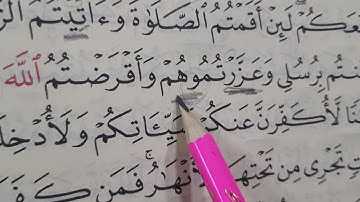 مَعَكُمْ لَئِنْ أَقَمْتُمُ ٱلصَّلَوٰةَ وَءَاتَيْتُمُ
بِرُسُلِى وَعَزَّرْتُمُوهُمْ وَأَقْرَضْتُمُ ٱللَّهَ
لَّأُكَفِّرَنَّ عَنكُمْ سَيِّـَٔاتِكُمْ
تَجْرِى مِن تَحْتِهَا ٱلْأَنْهَٰرُ ۚ فَمَن